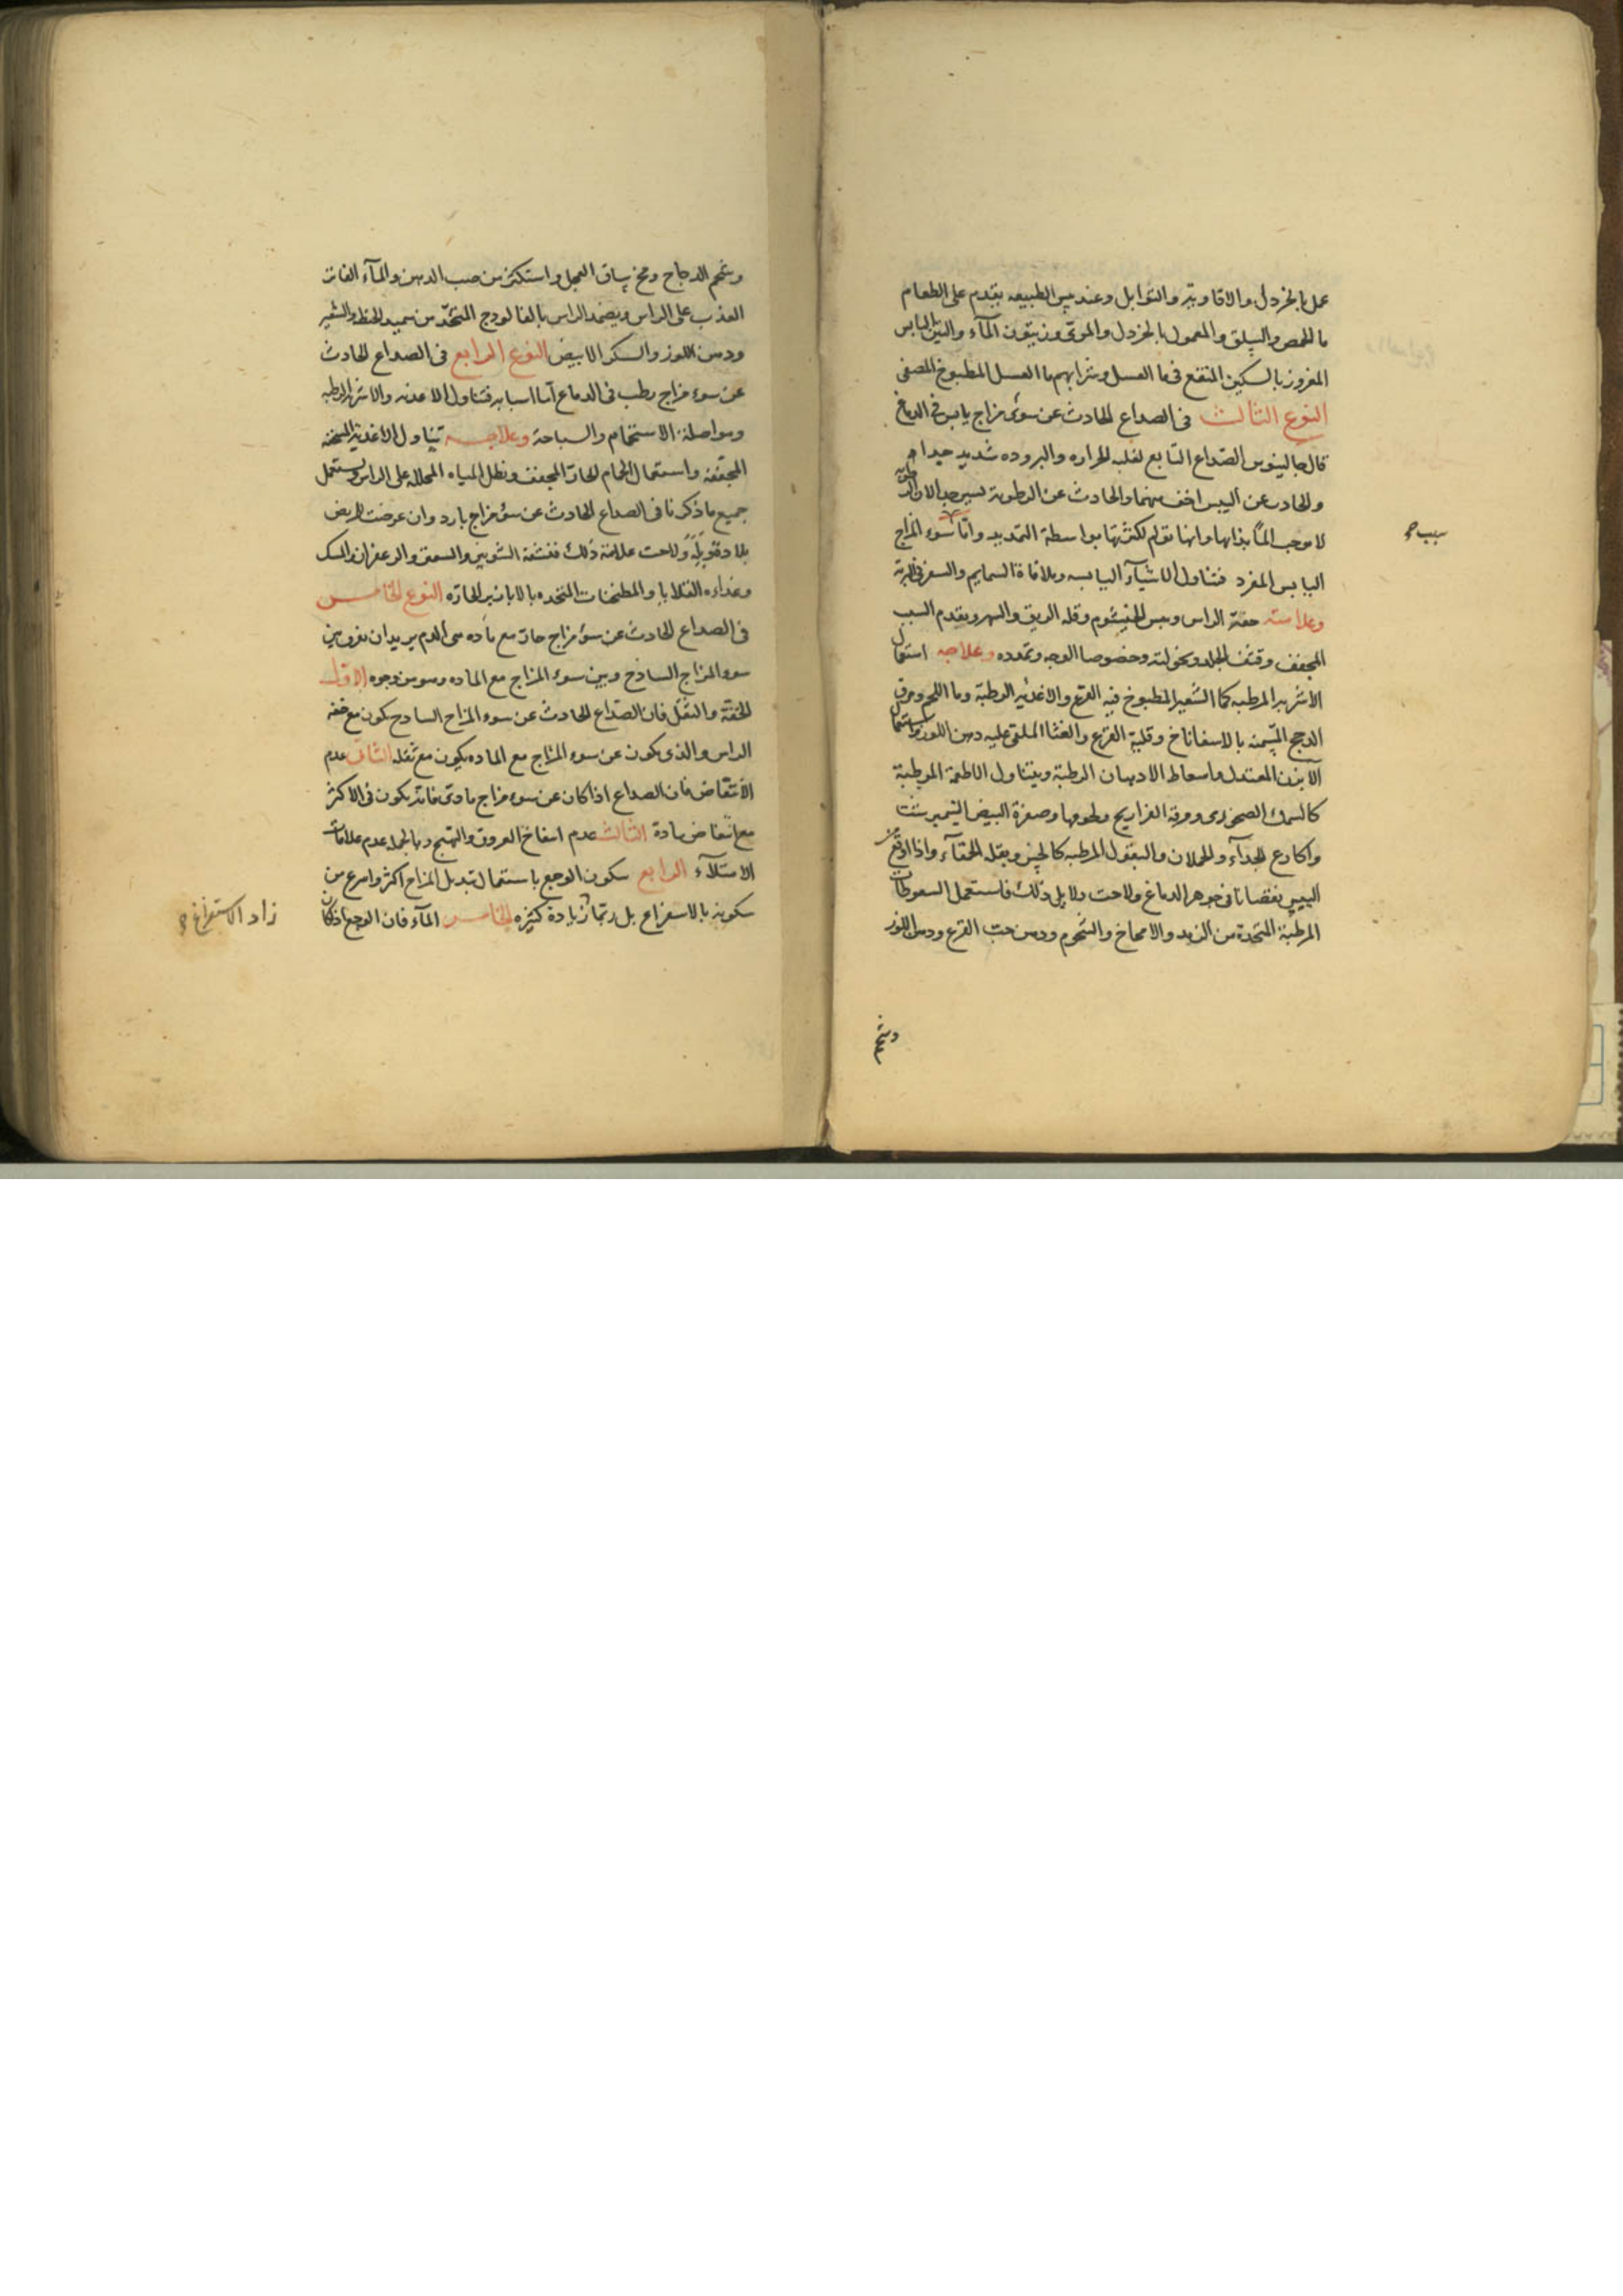 عمل بالخردل والافاويه والتوابل وعند يبس الطبيعه يقدم على الطعام
ما الحمص والسلق والمعمول بالخردل والمرى وزيتون المآء والتين اليابس
المغروز بالسكين المنقع فى ما العسل وشرابهم ما العسل المطبوخ المصفى
النوع الثالث فى الصداع الحادث عن سوء مزاج يابس فى الدماغ
قال جالينوس الصداع التابع لغلبه الحراره والبروده شديد جدا
والحادث عن اليبس اخف منهما والحادث عن الرطوبة
لا يوجب الماً بذاتها وانها تولم لكثرتها بواسطة التمديد واما سوء المزاج
سبب
اليابس المفرد فتناول الاشيآء اليابسه وملاقاة السمايم والسفر
وعلامته خفة الراس ويبس الخيشوم وقله الريق والسهر وتقدم السبب
المجفف وقشف الجلد ونحولته وخصوصا الوجه وتمدده وعلاجه استعمال
الاشربه المرطبه كما الشعير المطبوخ فيه القرع والاغذيه الرطبة وما اللحم ومرق
الدجج المسمنه بالاسفاناخ وقلية القرع والقثا الملقى عليه دهن اللوز واستعمال
الآبزن المعتدل واسعاط الادهان الرطبة ويتناول الاطعمة المرطبة
كالسمك الصخورى ومرقة الفراريج ولحومها وصفرة البيض النيمبرشت
واكارع الجدآء والحملان والبقول المرطبه كالخس وبقله الحمقآء واذا
اليبس نقصانا فى جوهر الدماغ ولاحت دلايل ذلك فاستعمل السعوطات
المرطبة المتخذة من الزبد والامخاخ والشحوم ودهن حب القرع ودهن اللوز
وشحم
وشحم الدجاج ومخ ساق العجل واستكثر من صب الدهن والمآء الفاتر
العذب على الراس ويضمد الراس بالفالوذج المتخذ من سميد الحنطه والشعير
ودهن اللوز والسكر الابيض النوع الرابع فى الصداع الحادث
عن سوء مزاج رطب فى الدماغ اما اسبابه فتناول الاغذيه والاشربه الرطبه
ومواصلة الاستحمام والسباحة وعلاجه تناول الاغذية المسخنه
المجففه واستعمال الحمام الحار المجفف ونطل المياه المحلله على الراس ويستعمل
جميع ما ذكرنا فى الصداع الحادث عن سوء مزاج بارد وان عرضت للمريض
بلادة قوية ولاحت علامة ذلك فنشقه الشونيز والسعتر والزعفران والمسك
وغذاءه القلايا والمطجنات المتخذه بالابازير الحارّه النوع الخامس
فى الصداع الحادث عن سوء مزاج حار مع ماده هى الدم يريد ان نفرق بين
سوء المزاج الساذج وبين سوء المزاج مع الماده وهو من وجوه الاول
الخفة والثقل فان الصداع الحادث عن سوء المزاج الساذج يكون مع خفه
الراس والذى يكون عن سوء المزاج مع الماده يكون مع ثقله الثانى عدم
الانتفاض فان الصداع اذا كان عن سوء مزاج مادى فانه يكون فى الاكثر
مع انتفاض مادة الثالث عدم انتفاخ العروق والتهيج وبالجمله عدم علامات
الامتلآء الرابع سكون الوجع باستعمال تبديل المزاج اكثر واسرع من
سكونه بالاستفراغ بل ربما زيادة كثيره الخامس المآء فان الوجع اذا كان
زاد الاستفراغ